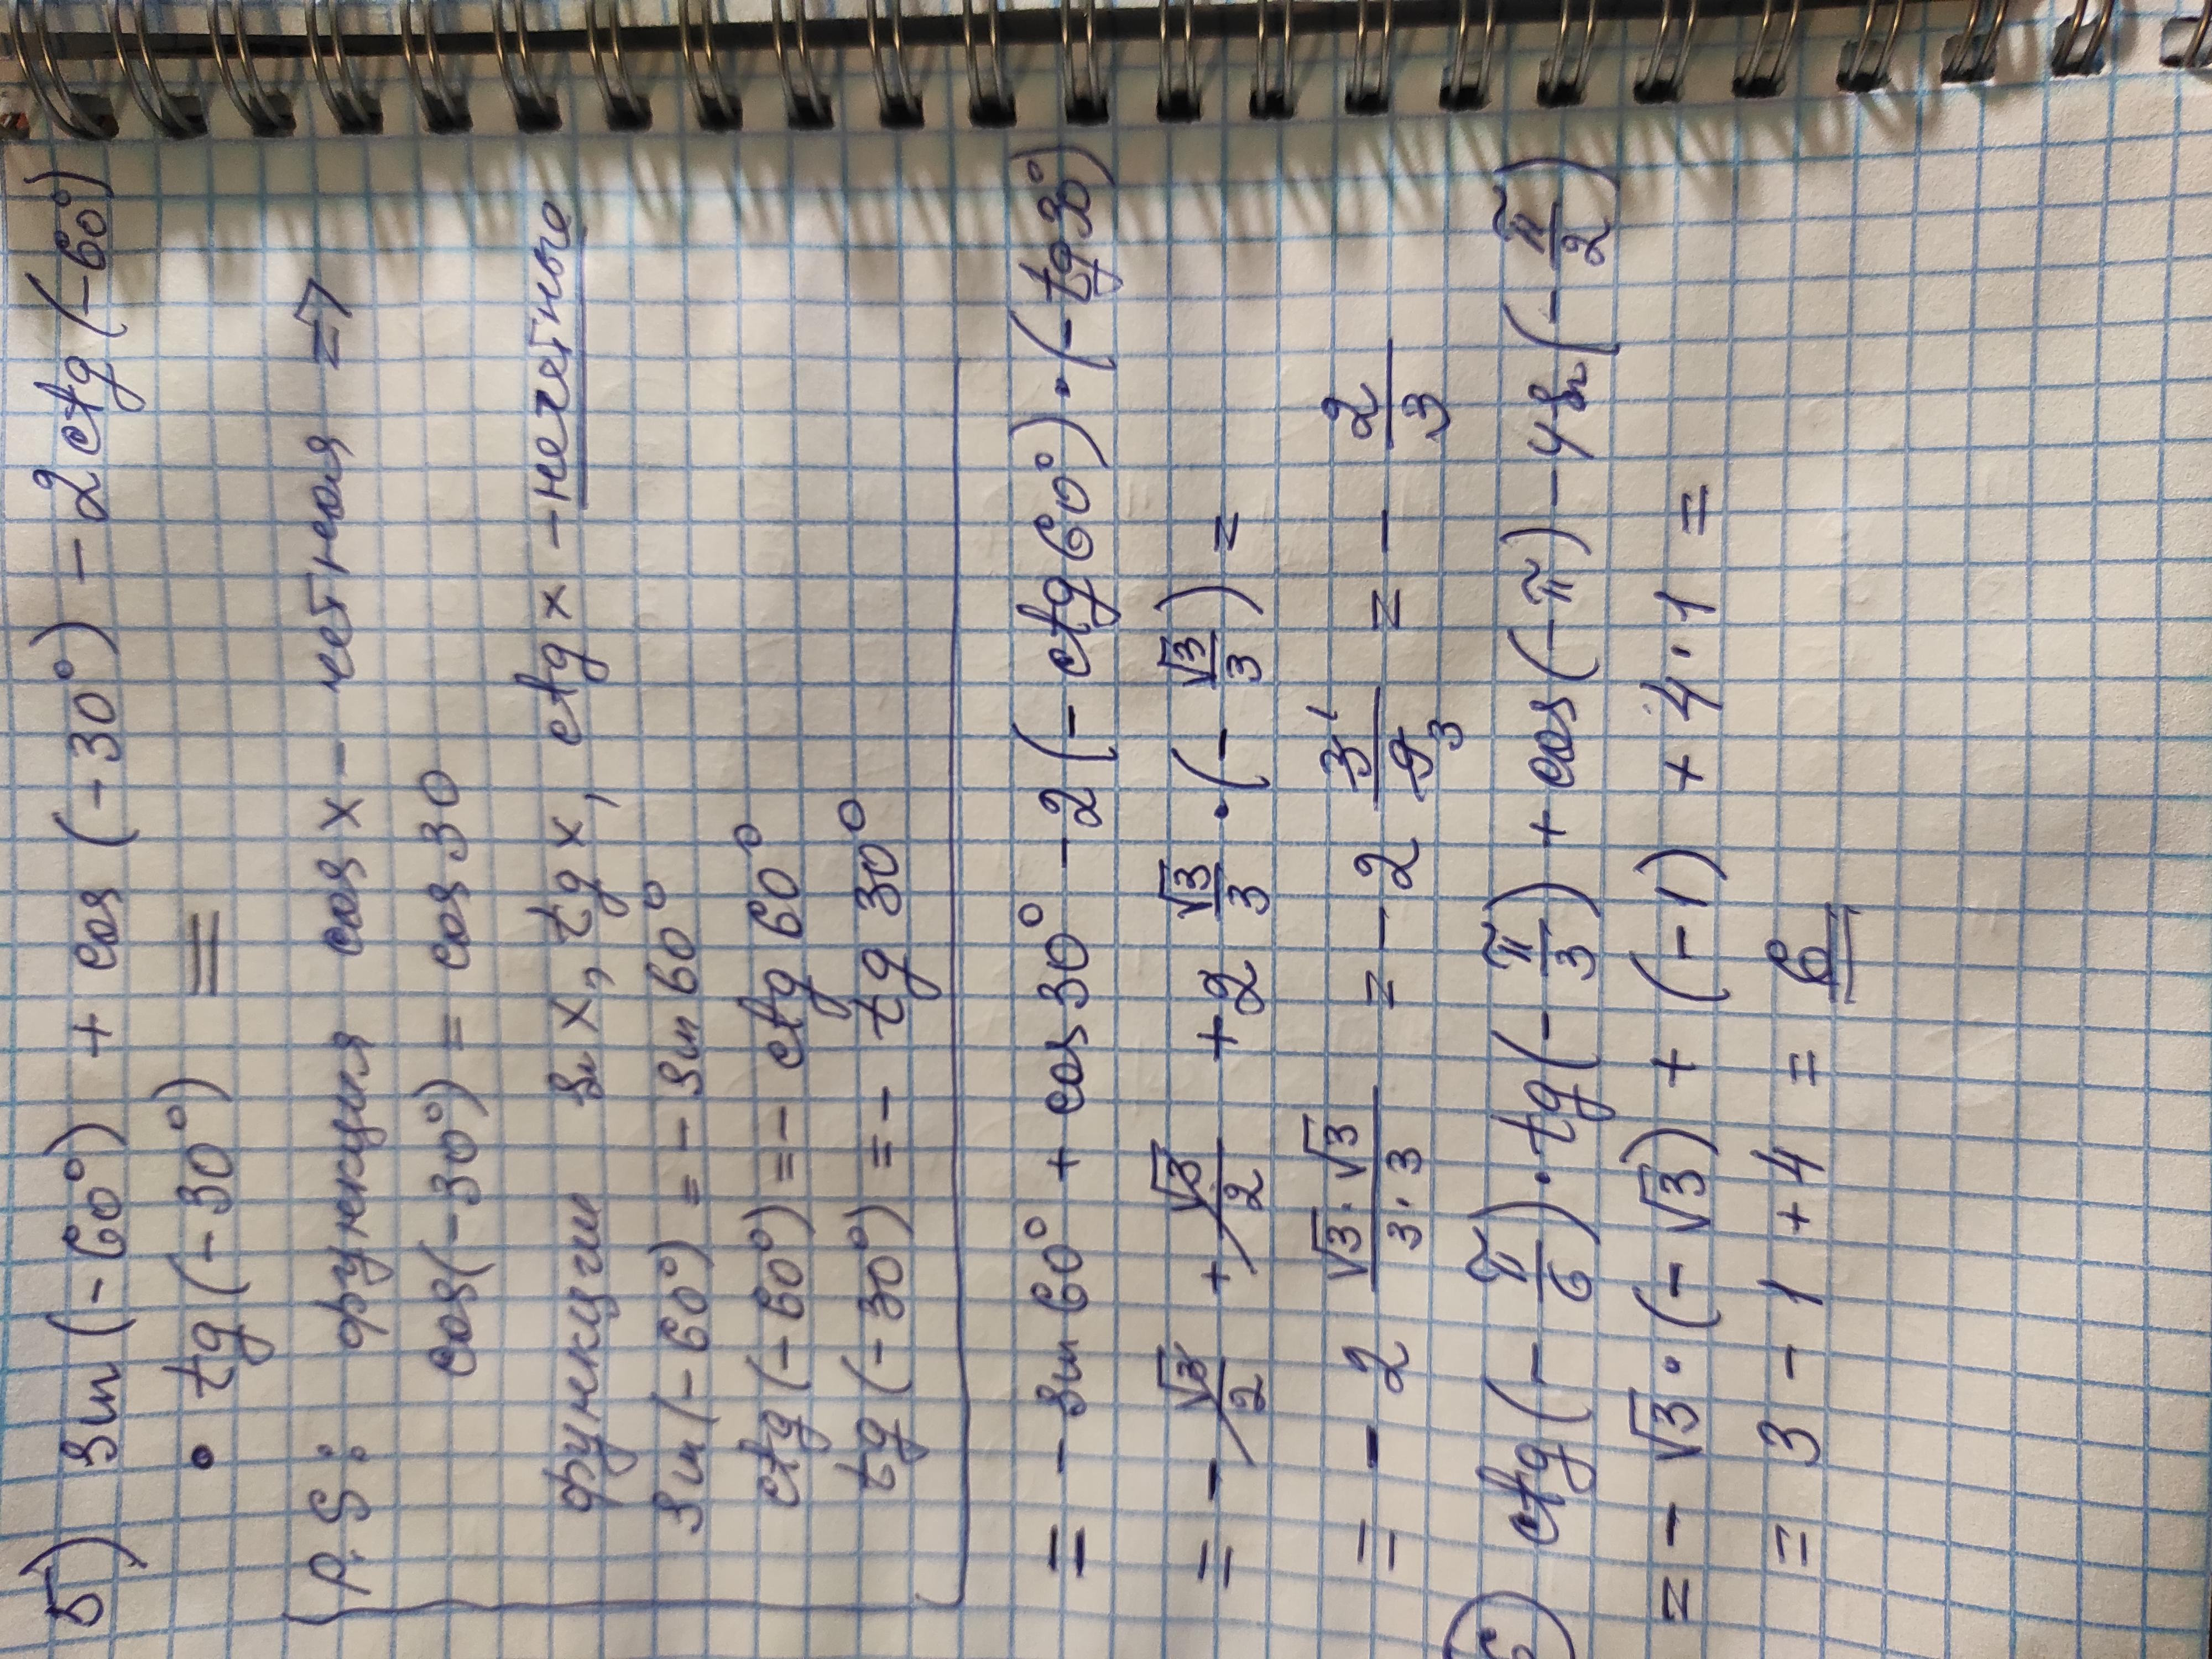 5) sin(-60°) + cos(-30°) - 2ctg(-60°)
· tg(-30°) =
P.S: функция cos x - четная =>
cos(-30°) = cos 30
функции sin x, tg x, ctg x - нечетные
sin(-60°) = - sin 60°
ctg(-60°) = - ctg 60°
tg(-30°) = - tg 30°
= - sin 60° + cos 30° - 2(-ctg 60°)·(-tg 30°)
= - √3/2 + √3/2 + 2 √3/3 · (- √3/3) =
= - 2 √3·√3/3·3 = - 2 3/9 1/3 = - 2/3
6) ctg(- π/6)·tg(- π/3) + cos(-π) - 4 sin(- π/2)
= - √3·(-√3) + (-1) + 4·1 =
= 3 - 1 + 4 = 6